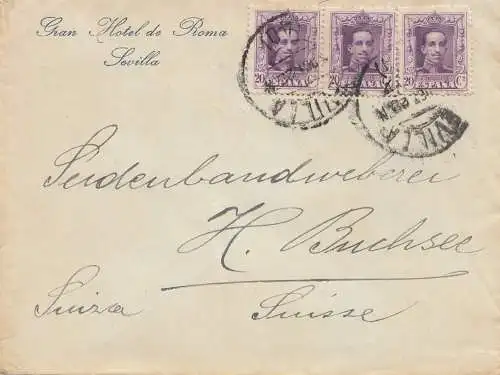 Gran Hotel de Roma
Sevilla
20 ESPAÑA
20 ESPAÑA
20 ESPAÑA 20 Cs
Seidenbandweberei
H. Buchsee
Suiza Suisse